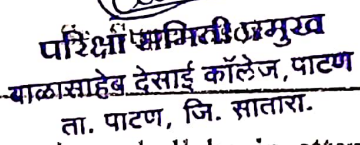 परिक्षा समिती प्रमुख
बाळासाहेब देसाई कॉलेज, पाटण
ता. पाटण, जि. सातारा.